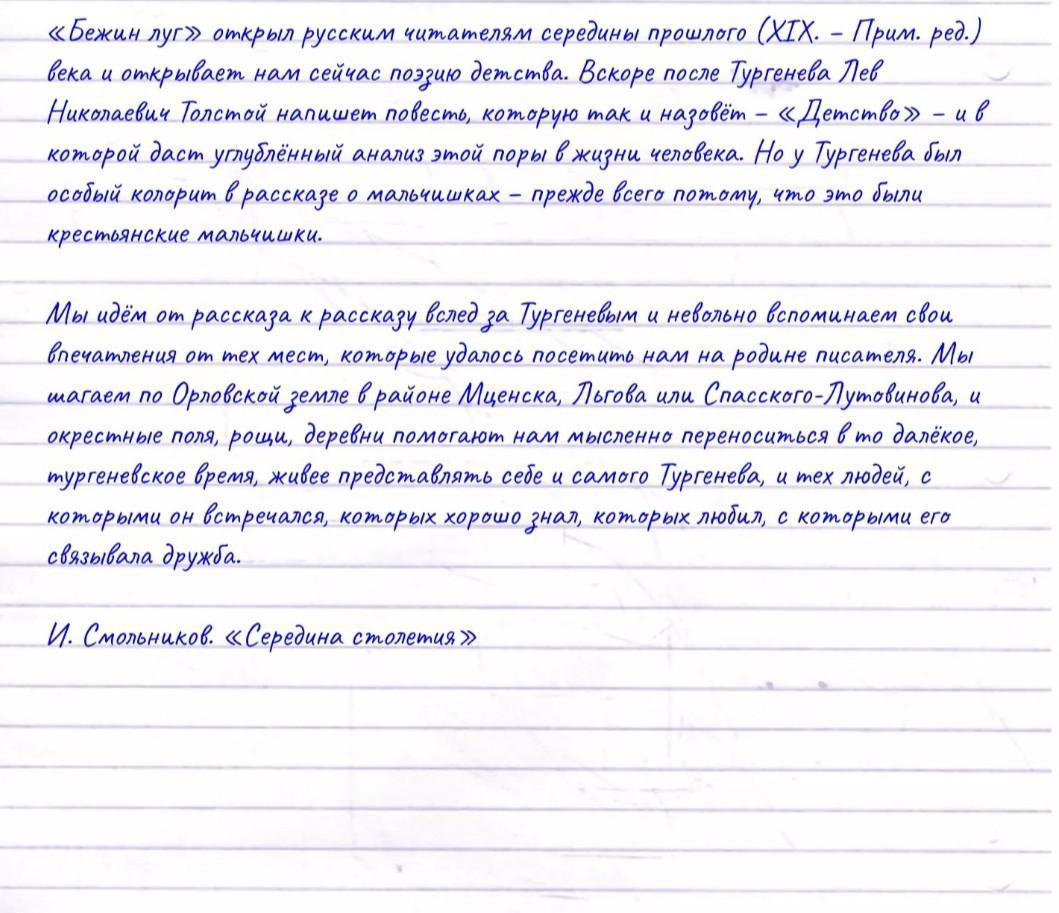 «Бежин луг» открыл русским читателям середины прошлого (XIX. – Прим. ред.)
века и открывает нам сейчас поэзию детства. Вскоре после Тургенева Лев
Николаевич Толстой напишет повесть, которую так и назовёт – «Детство» – и в
которой даст углублённый анализ этой поры в жизни человека. Но у Тургенева был
особый колорит в рассказе о мальчишках – прежде всего потому, что это были
крестьянские мальчишки.
Мы идём от рассказа к рассказу вслед за Тургеневым и невольно вспоминаем свои
впечатления от тех мест, которые удалось посетить нам на родине писателя. Мы
шагаем по Орловской земле в районе Мценска, Льгова или Спасского-Лутовинова, и
окрестные поля, рощи, деревни помогают нам мысленно переноситься в то далёкое,
тургеневское время, живее представлять себе и самого Тургенева, и тех людей, с
которыми он встречался, которых хорошо знал, которых любил, с которыми его
связывала дружба.
И. Смольников. «Середина столетия»